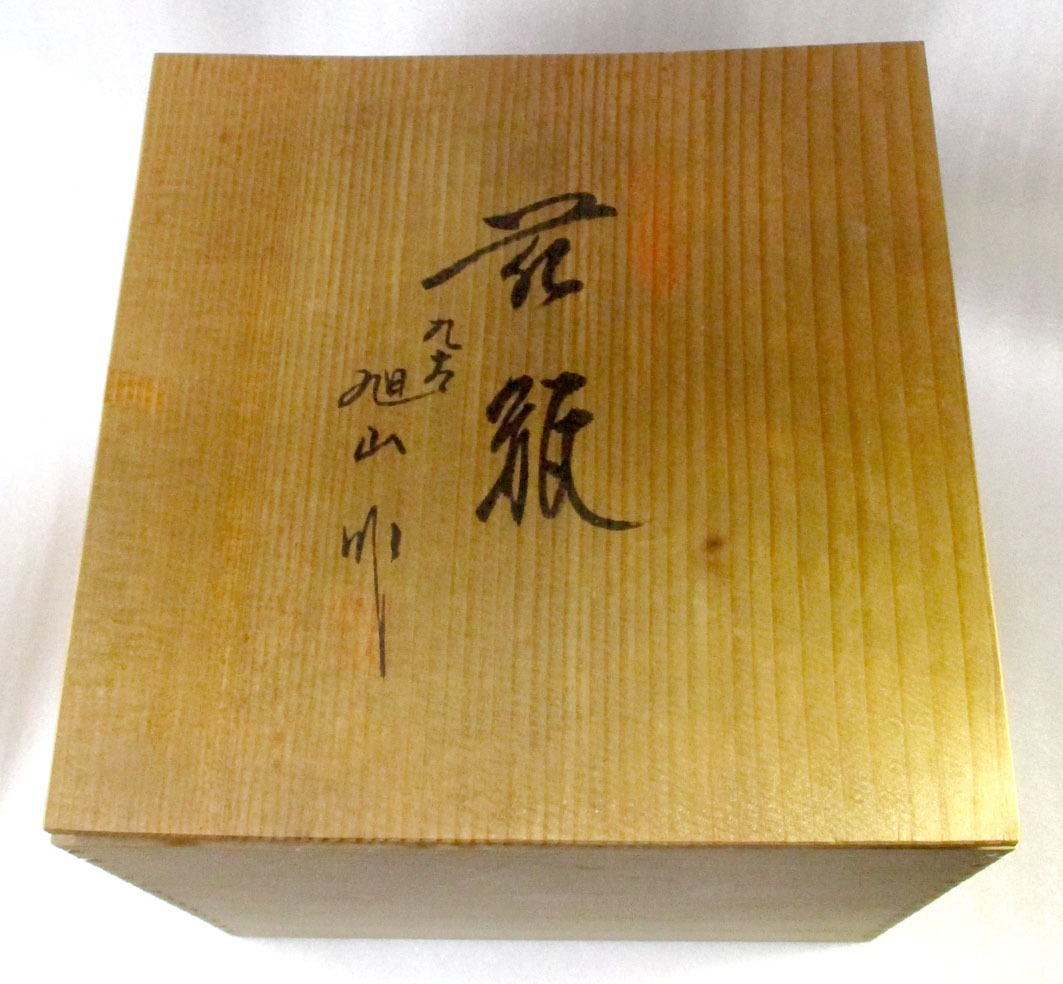 花瓶
九谷
旭山作